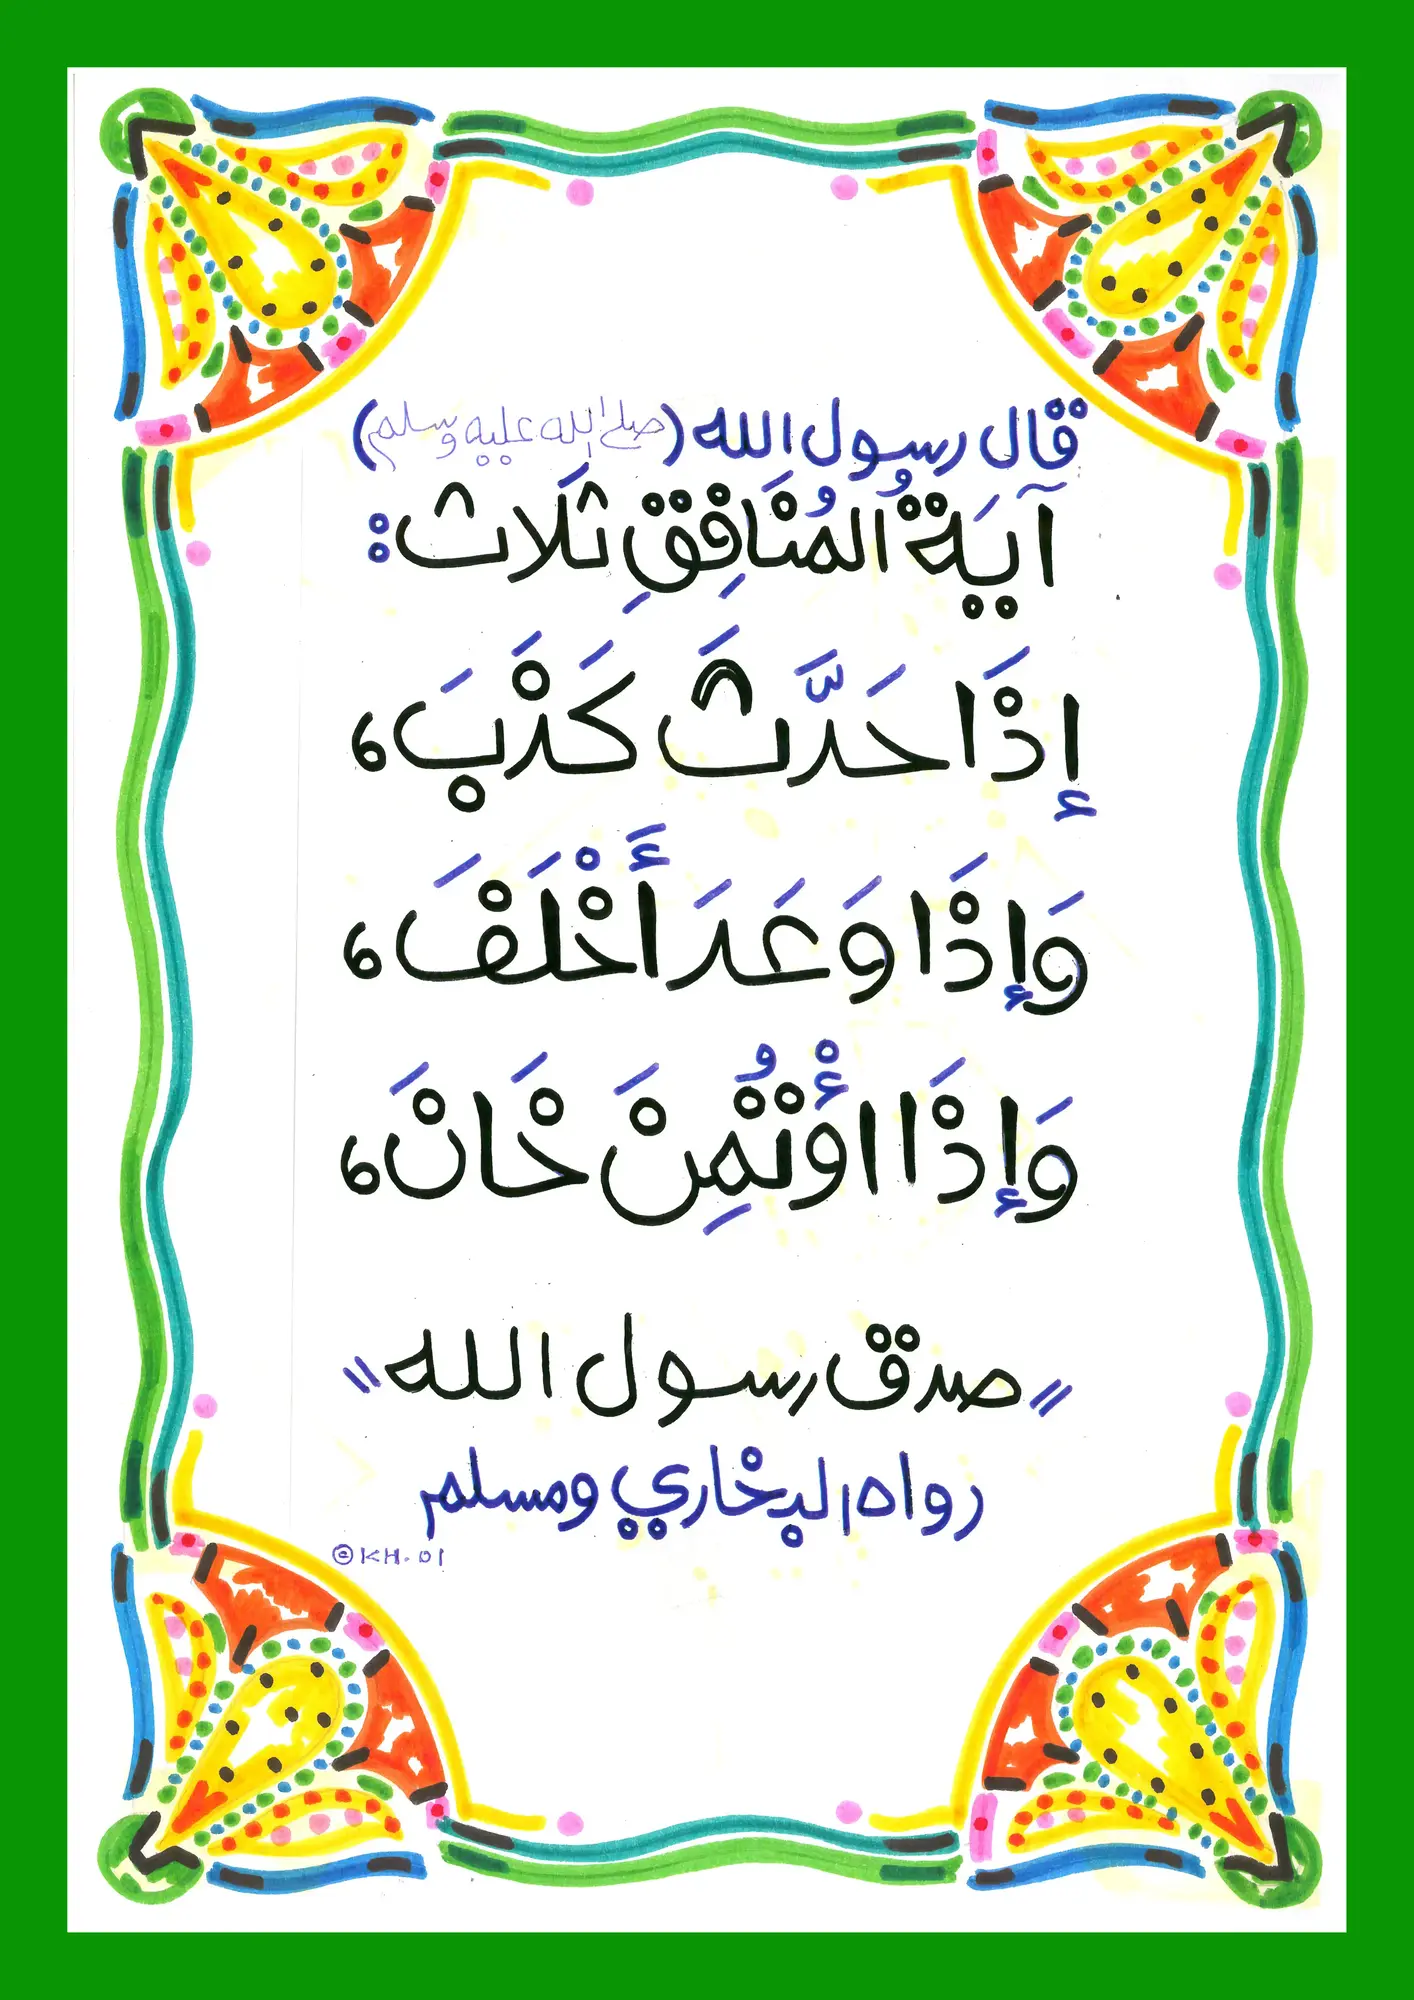 قال رسول الله (صلى الله عليه وسلم)
آيَةُ الْمُنَافِقِ ثَلاث:
إِذَا حَدَّثَ كَذَبَ،
وَإِذَا وَعَدَ أَخْلَفَ،
وَإِذَا اؤْتُمِنَ خَانَ،
"صدق رسول الله"
رواه البخاري ومسلم
© KH. 01